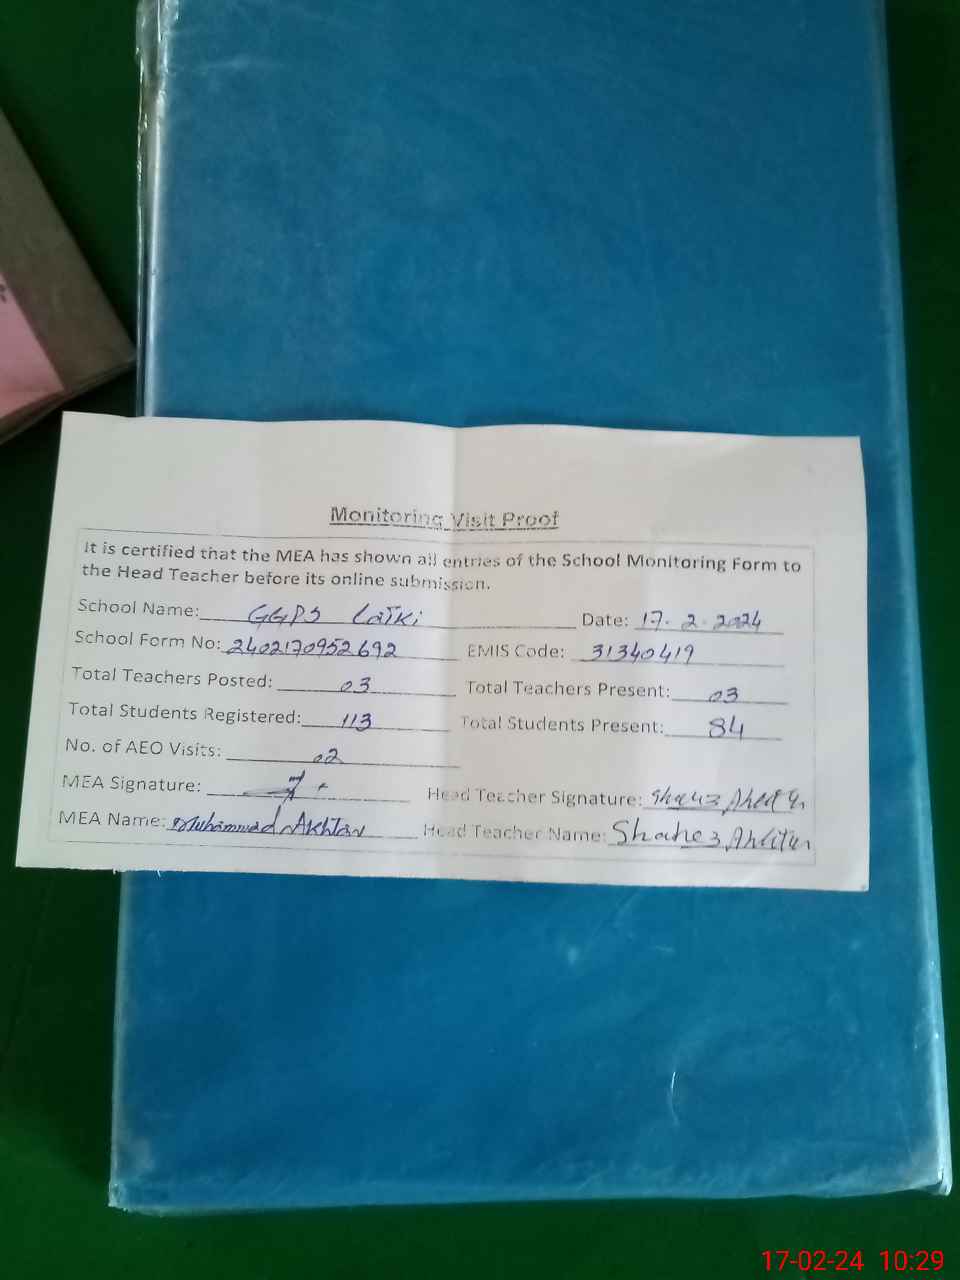 Monitoring Visit Proof
It is certified that the MEA has shown all entries of the School Monitoring Form to
the Head Teacher before its online submission.
School Name: GGPS Latki Date: 17.2.2024
School Form No: 2402170952692 EMIS Code: 31340419
Total Teachers Posted: 03 Total Teachers Present: 03
Total Students Registered: 113 Total Students Present: 84
No. of AEO Visits: 02
MEA Signature: Head Teacher Signature:
MEA Name: Muhammad Akhtar Head Teacher Name:
17-02-24 10:29